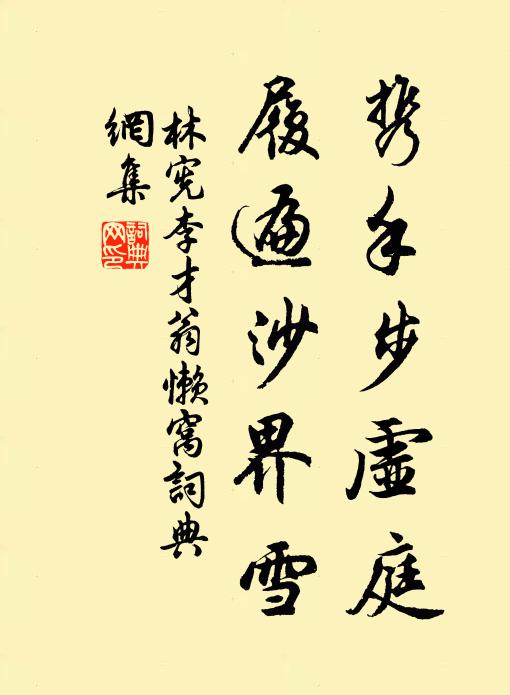 携手步虛庭
履遍沙界雪
林宪李才翁懒窝詞典
網集
詞典
网印